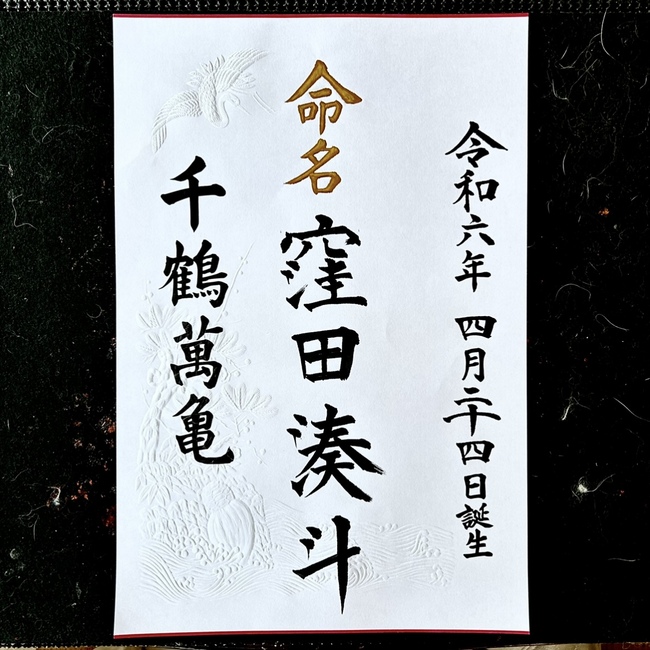 令和六年 四月二十四日誕生
命名 窪田湊斗
千鶴萬亀